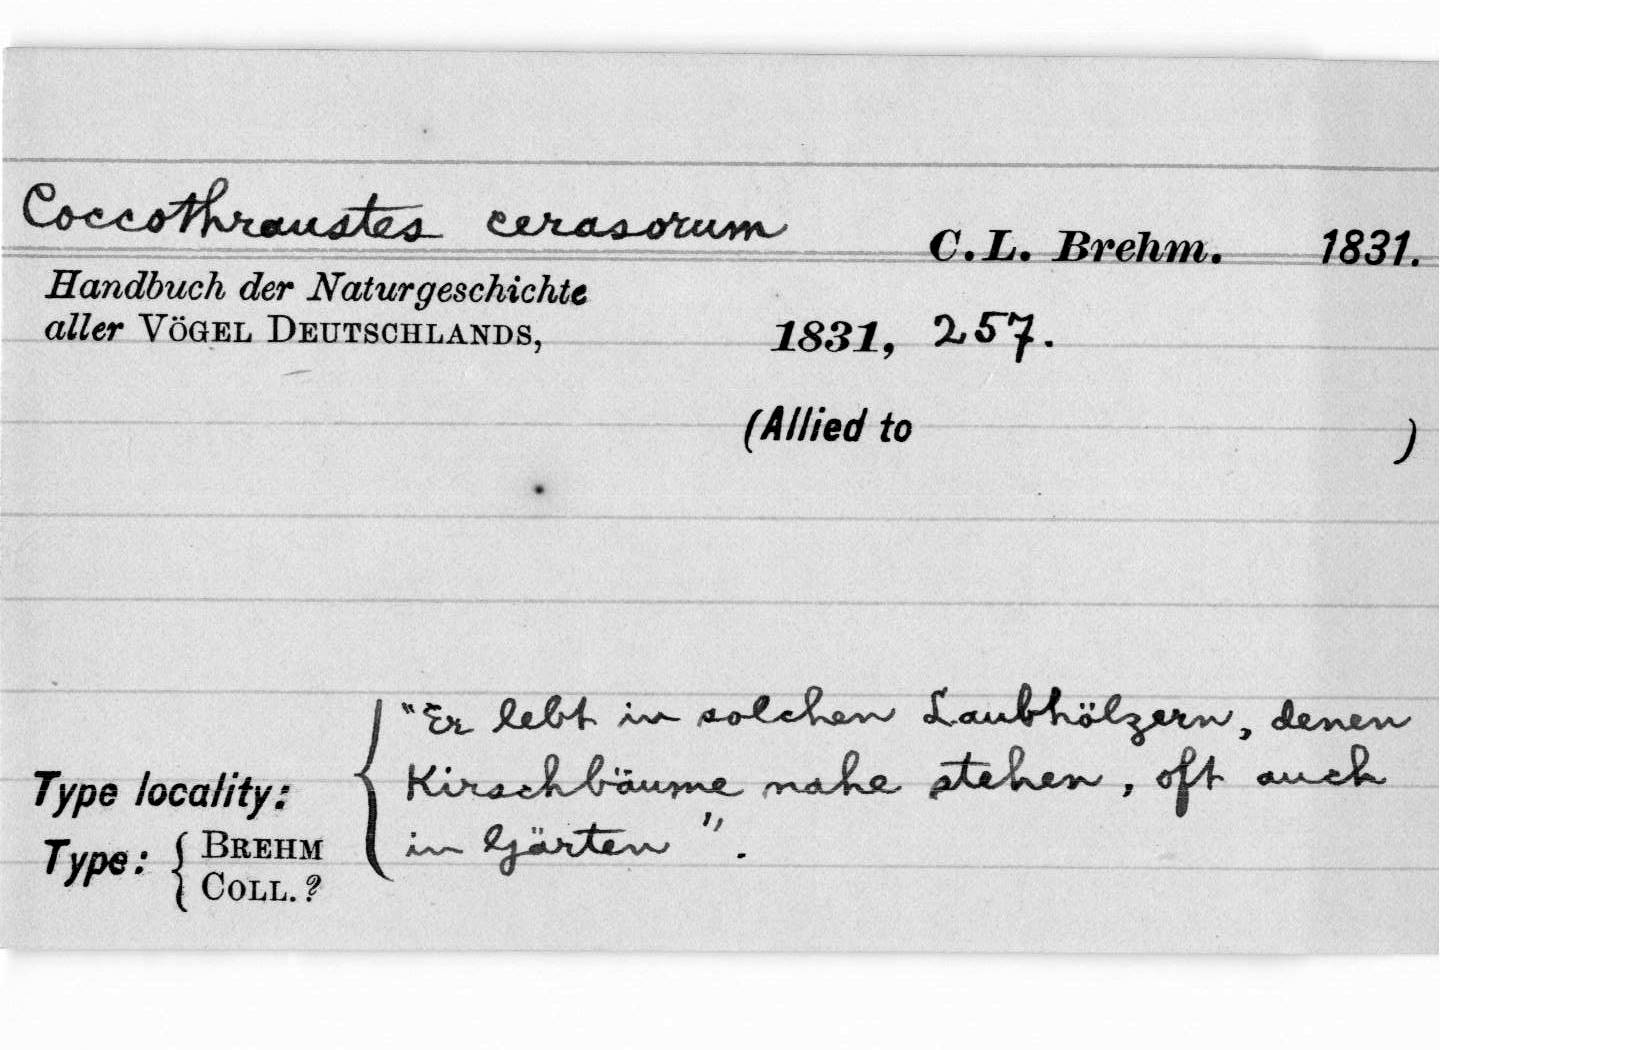 Coccothraustes cerasorum C.L. Brehm. 1831.
Handbuch der Naturgeschichte
aller VÖGEL DEUTSCHLANDS, 1831, 257.
(Allied to )
"Er lebt in solchen Laubhölzern, denen
Type locality: Kirschbäume nahe stehen, oft auch
in Gärten".
Type: { BREHM
COLL. ?